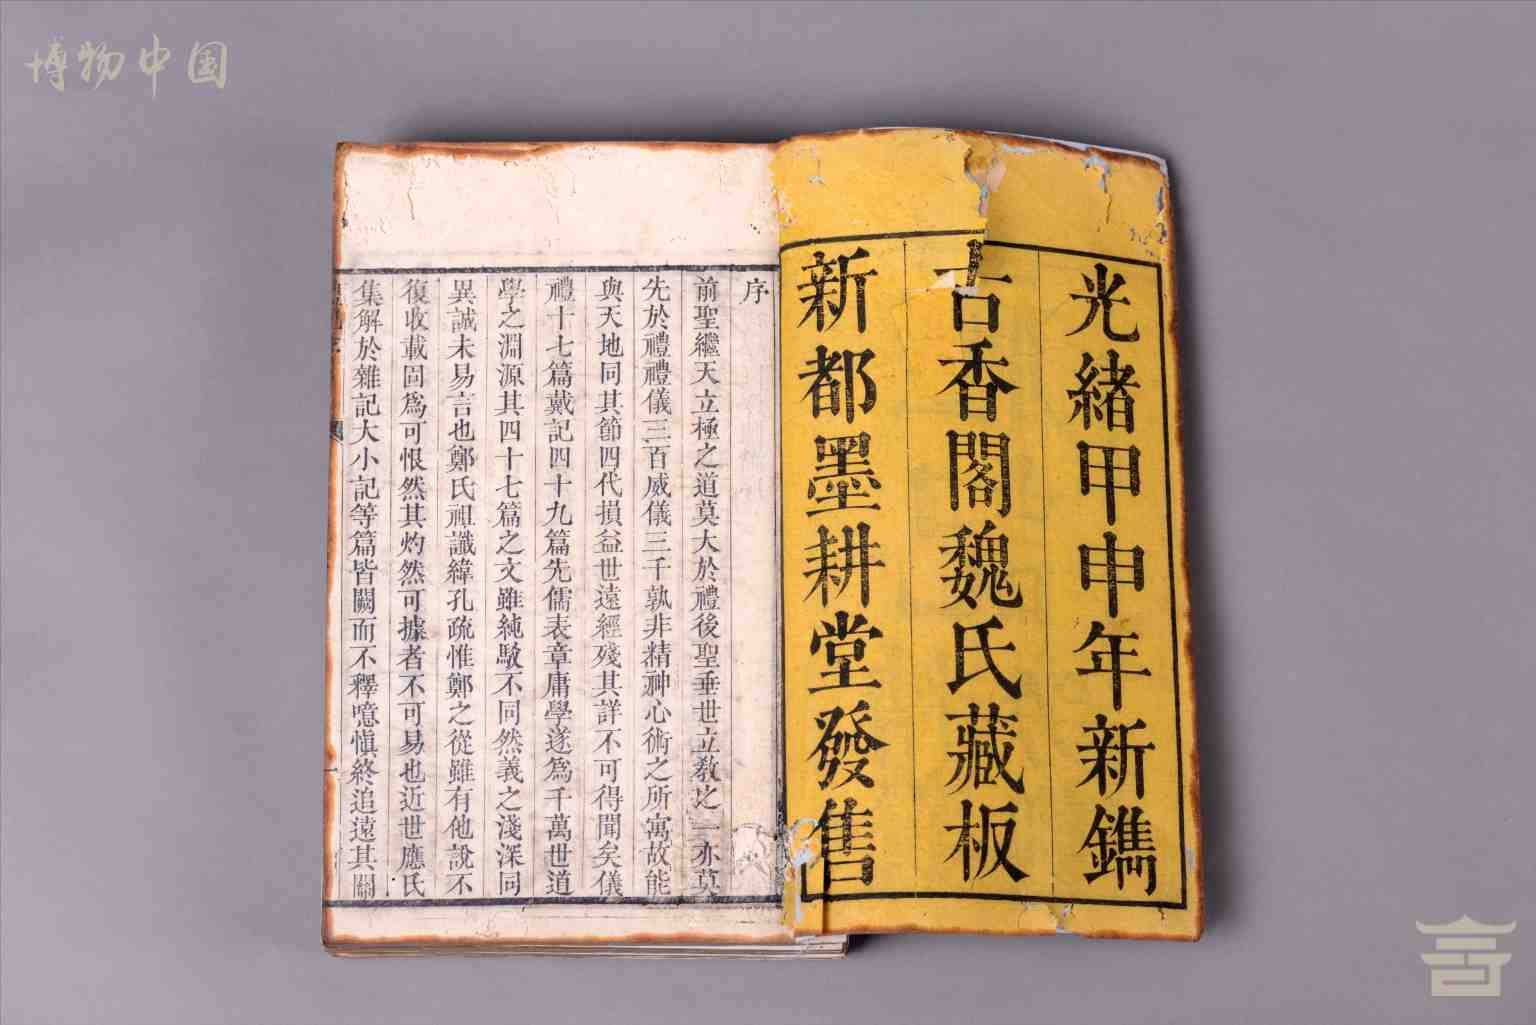 博物中国
光緒甲申年新鐫
古香閣魏氏藏板
新都墨耕堂發售
序
前聖繼天立極之道莫大於禮後聖垂世立教之一亦莫
先於禮禮儀三百威儀三千孰非精神心術之所寓故能
與天地同其節四代損益世遠經殘其詳不可得聞矣儀
禮十七篇戴記四十九篇先儒表章庸學遂為千萬世道
學之淵源其四十七篇之文雖純駁不同然義之淺深同
異誠未易言也鄭氏祖讖緯孔疏惟鄭之從雖有他說不
復收載固為可恨然其灼然可據者不可易也近世應氏
集解於雜記大小記等篇皆闕而不釋噫慎終追遠其關